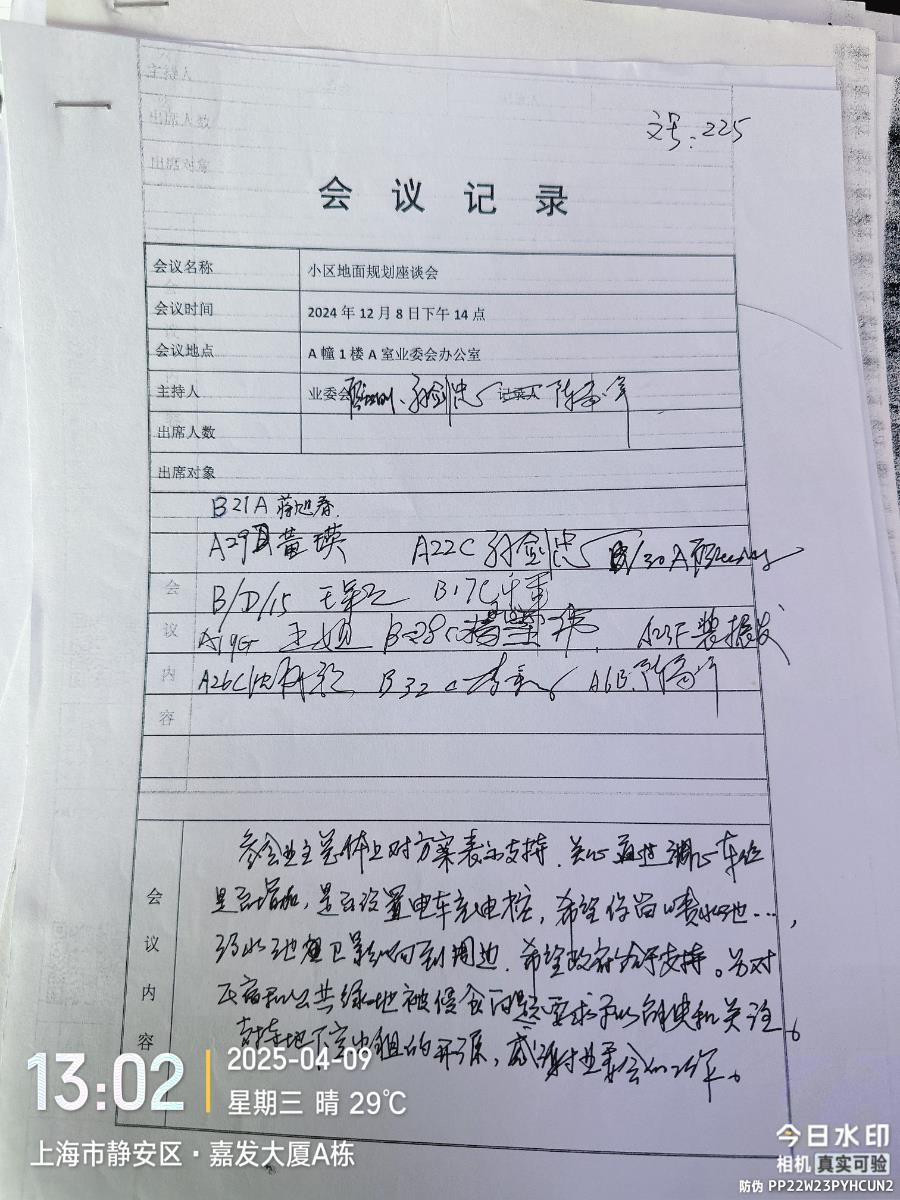 文号:225
会议记录
会议名称 小区地面规划座谈会
会议时间 2024年12月8日下午14点
会议地点 A幢1楼A室业委会办公室
主持人 业委会 孙剑忠 记录人
出席人数
出席对象
B21A 蒋旭春
A29B 黄瑛 A22C 孙剑忠 B/30A
B/D/15 B17C
A19G 王 B28C 杨 A23F
A26C B32C 李 A6B
会议内容
参会业主总体上对方案表示支持.关心通过调整车位
是否增加,是否设置电车充电桩,希望保留喷水池…,
污水池 影响到周边.希望政府给予支持。另对
民宿和公共绿地被侵食问题要求予以解决和关注。
支持地下室出租的开源,感谢业委会的工作。
会议内容
13:02
2025-04-09
星期三 晴 29℃
上海市静安区·嘉发大厦A栋
今日水印
相机 真实可验
防伪 PP22W23PYHCUN2